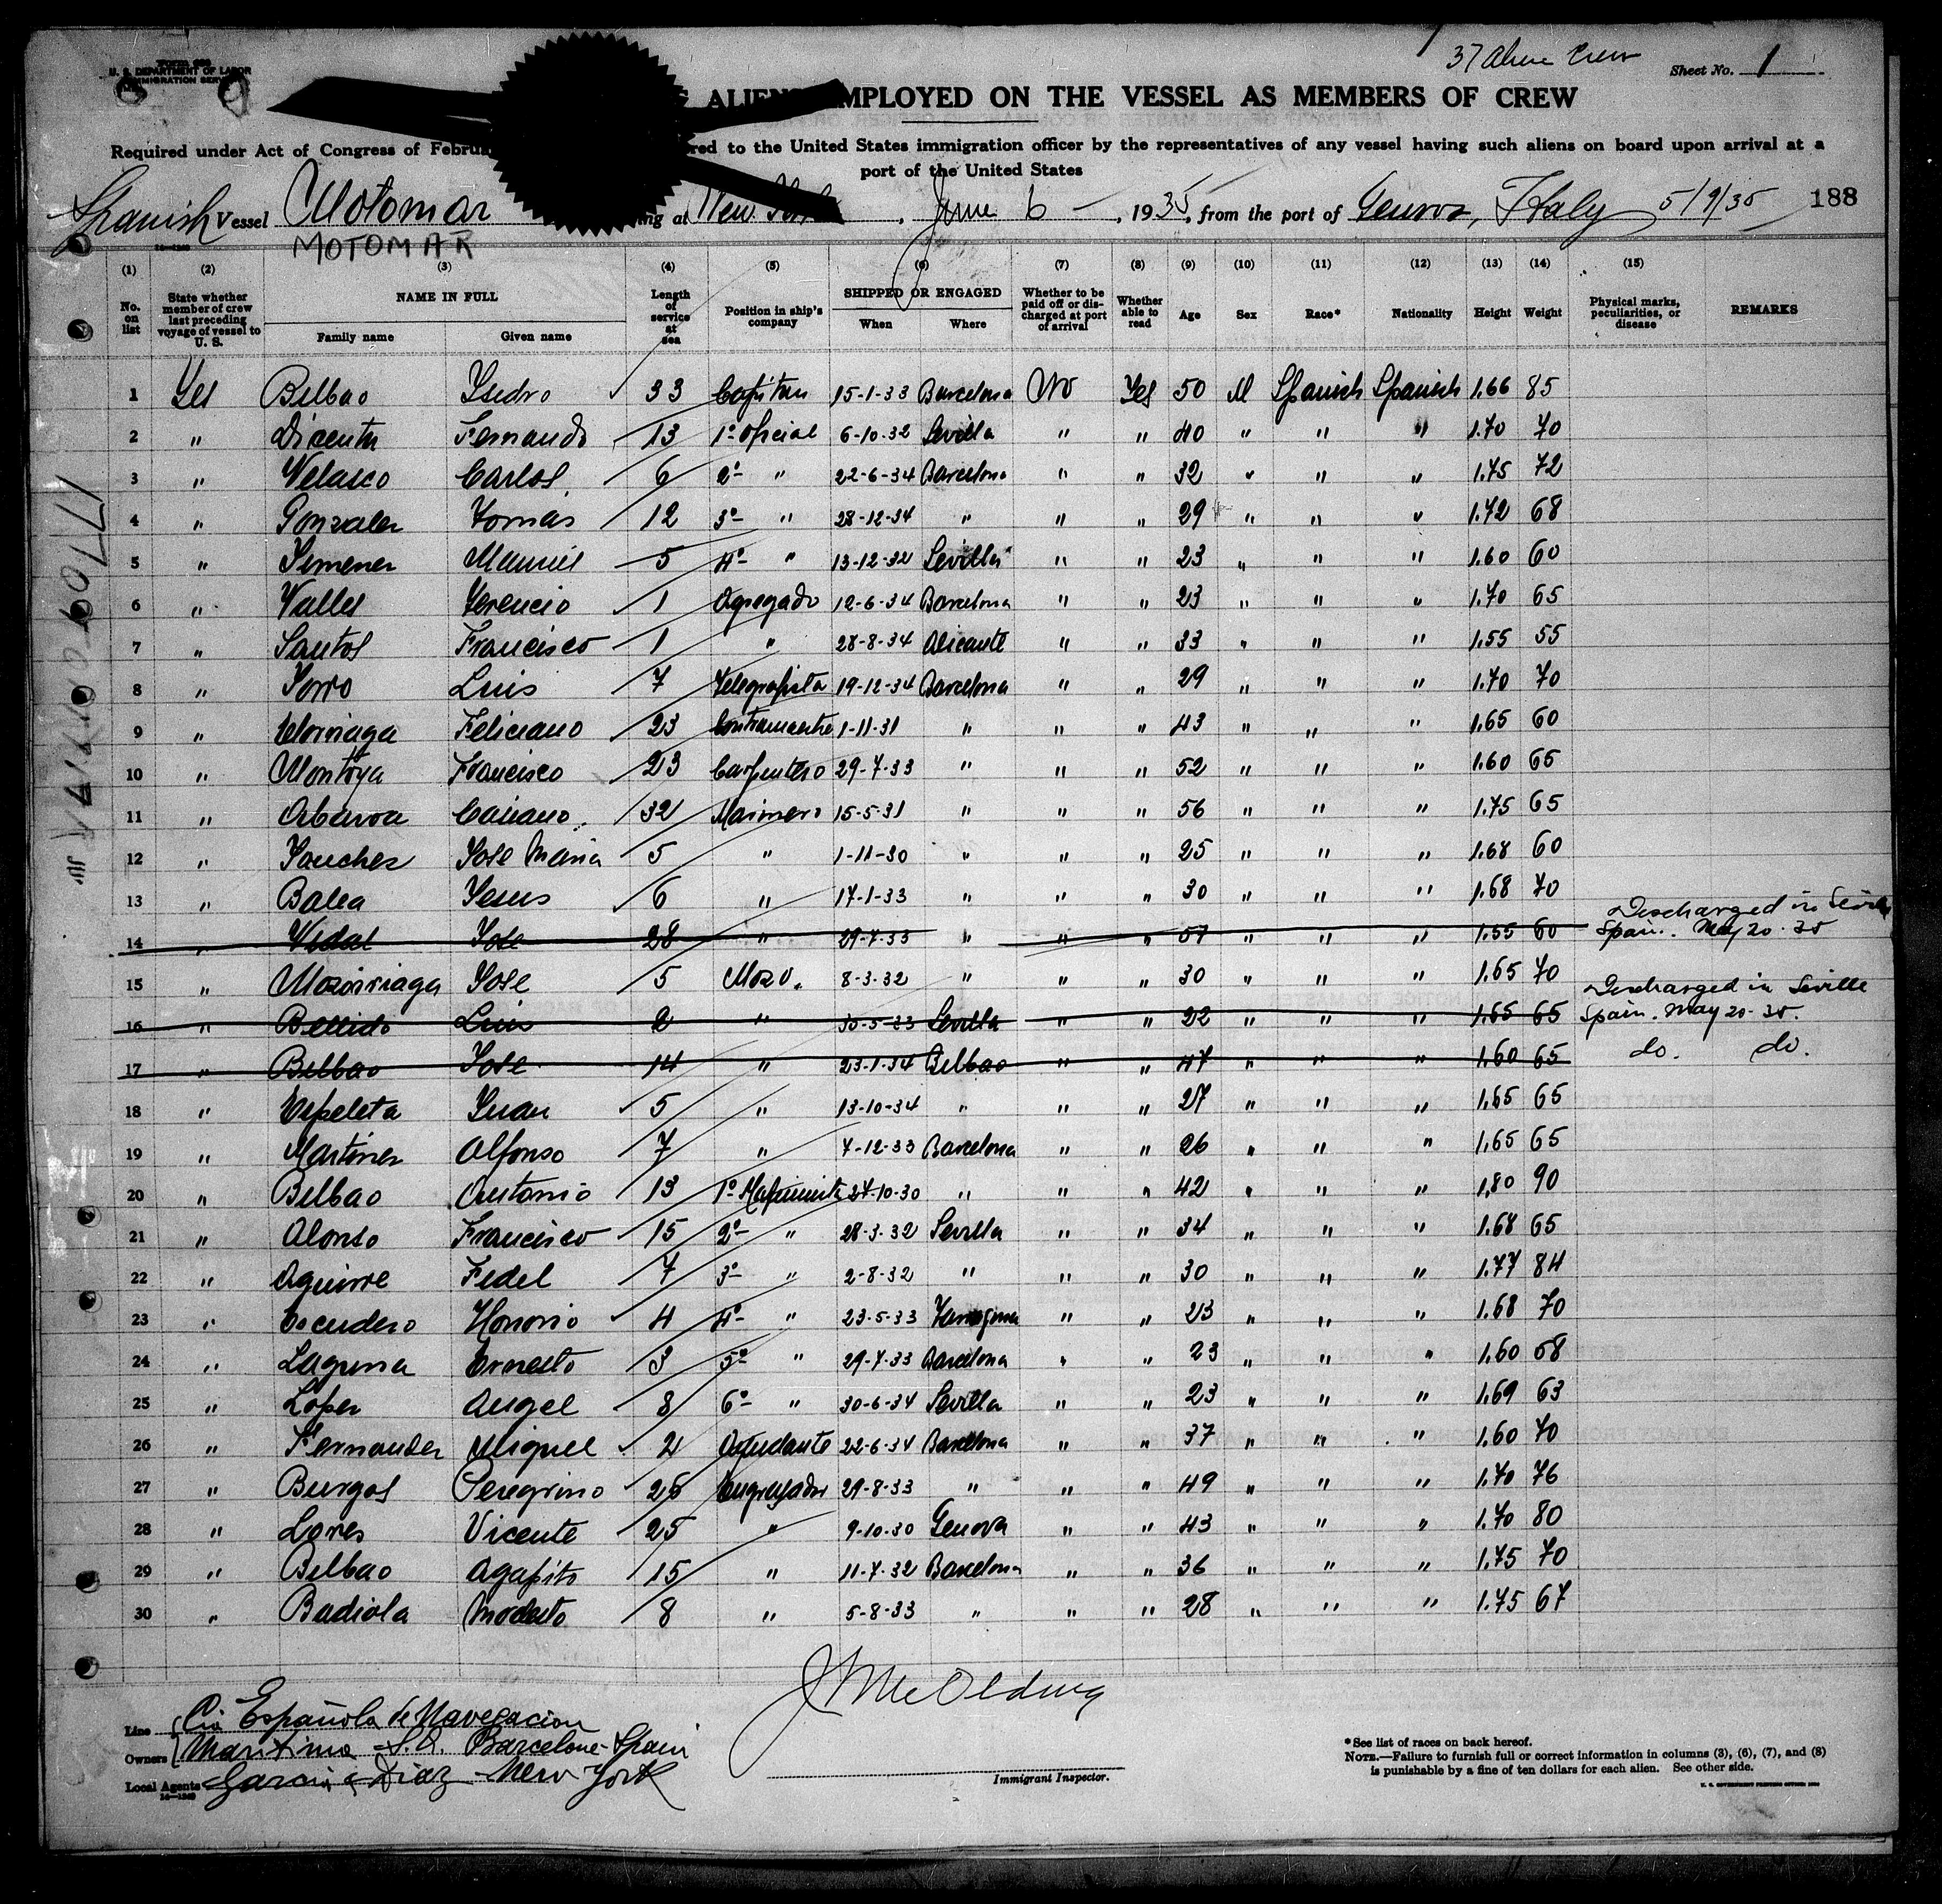 Form 689
U. S. DEPARTMENT OF LABOR
IMMIGRATION SERVICE
37 Alien Crew
Sheet No. 1
ALIENS EMPLOYED ON THE VESSEL AS MEMBERS OF CREW
Required under Act of Congress of Februa red to the United States immigration officer by the representatives of any vessel having such aliens on board upon arrival at a
port of the United States
Spanish Vessel Motomar ing at New York, June 6, 1935, from the port of Genova, Italy 5/9/35 188
MOTOMAR
(1) (2) (3) (4) (5) (6) (7) (8) (9) (10) (11) (12) (13) (14) (15)
No. on list State whether member of crew last preceding voyage of vessel to U. S. NAME IN FULL Family name Given name Length of service at sea Position in ship's company SHIPPED OR ENGAGED When Where Whether to be paid off or discharged at port of arrival Whether able to read Age Sex Race* Nationality Height Weight Physical marks, peculiarities, or disease REMARKS
1 Yes Bilbao Isidro 33 Capitan 15-1-33 Barcelona No Yes 50 M Spanish Spanish 1.66 85
2 " Dicenta Fernando 13 1º Oficial 6-10-32 Sevilla " " 40 " " " 1.70 70
3 " Velasco Carlos 6 2º " 22-6-34 Barcelona " " 32 " " " 1.75 72
4 " Gonzalez Tomás 12 3º " 28-12-34 " " " 29 " " " 1.72 68
5 " Jimenez Manuel 5 4º " 13-12-32 Sevilla " " 23 " " " 1.60 60
6 " Valles Gerencio 1 Agregado 12-6-34 Barcelona " " 23 " " " 1.70 65
7 " Santos Francisco 1 " 28-8-34 Alicante " " 33 " " " 1.55 55
8 " Luis 7 Telegrafista 19-12-34 Barcelona " " 29 " " " 1.70 70
9 " Feliciano 23 Contramaestre 1-11-31 " " " 43 " " " 1.65 60
10 " Montoya Francisco 23 Carpintero 29-7-33 " " " 52 " " " 1.60 65
11 " 32 Marinero 15-5-31 " " " 56 " " " 1.75 65
12 " Sanchez Jose Maria 5 " 1-11-30 " " " 25 " " " 1.68 60
13 " Balea Jesus 6 " 17-1-33 " " " 30 " " " 1.68 70
14 " Vidal Jose 28 " 29-7-33 " " " 57 " " " 1.55 60 Discharged in Seville Spain. May 20-35
15 " Jose 5 Mozo. 8-3-32 " " " 30 " " " 1.65 70
16 " Bellido Luis 2 " 30-5-33 Sevilla " " 22 " " " 1.65 65 Discharged in Seville Spain. May 20-35.
17 " Bilbao Jose 14 " 23-1-34 Bilbao " " 47 " " " 1.60 65 do. do.
18 " Espeleta Juan 5 " 13-10-34 " " " 27 " " " 1.65 65
19 " Martinez Alfonso 7 " 7-12-33 Barcelona " " 26 " " " 1.65 65
20 " Bilbao Antonio 13 1º Maquinista 27-10-30 " " " 42 " " " 1.80 90
21 " Alonso Francisco 15 2º " 28-3-32 Sevilla " " 34 " " " 1.68 65
22 " Aguirre Fidel 7 3º " 2-8-32 " " " 30 " " " 1.77 84
23 " Escudero Honorio 4 4º " 23-5-33 Tarragona " " 23 " " " 1.68 70
24 " Laguna Ernesto 3 5º " 29-7-33 Barcelona " " 23 " " " 1.60 68
25 " Lopez Angel 8 6º " 30-6-34 Sevilla " " 23 " " " 1.69 63
26 " Fernandez Miguel 2 Ayudante 22-6-34 Barcelona " " 37 " " " 1.60 70
27 " Burgos Peregrino 25 Engrasador 29-8-33 " " " 49 " " " 1.70 76
28 " Lores Vicente 25 " 9-10-30 Genova " " 43 " " " 1.70 80
29 " Bilbao Agapito 15 " 11-7-32 Barcelona " " 36 " " " 1.75 70
30 " Badiola Modesto 8 " 5-8-33 " " " 28 " " " 1.75 67
Line Cia Española de Navegacion
Owners Maritima S.A. Barcelona-Spain
Local Agents Garcia & Diaz New York
Immigrant Inspector.
*See list of races on back hereof.
NOTE.—Failure to furnish full or correct information in columns (3), (6), (7), and (8)
is punishable by a fine of ten dollars for each alien. See other side.